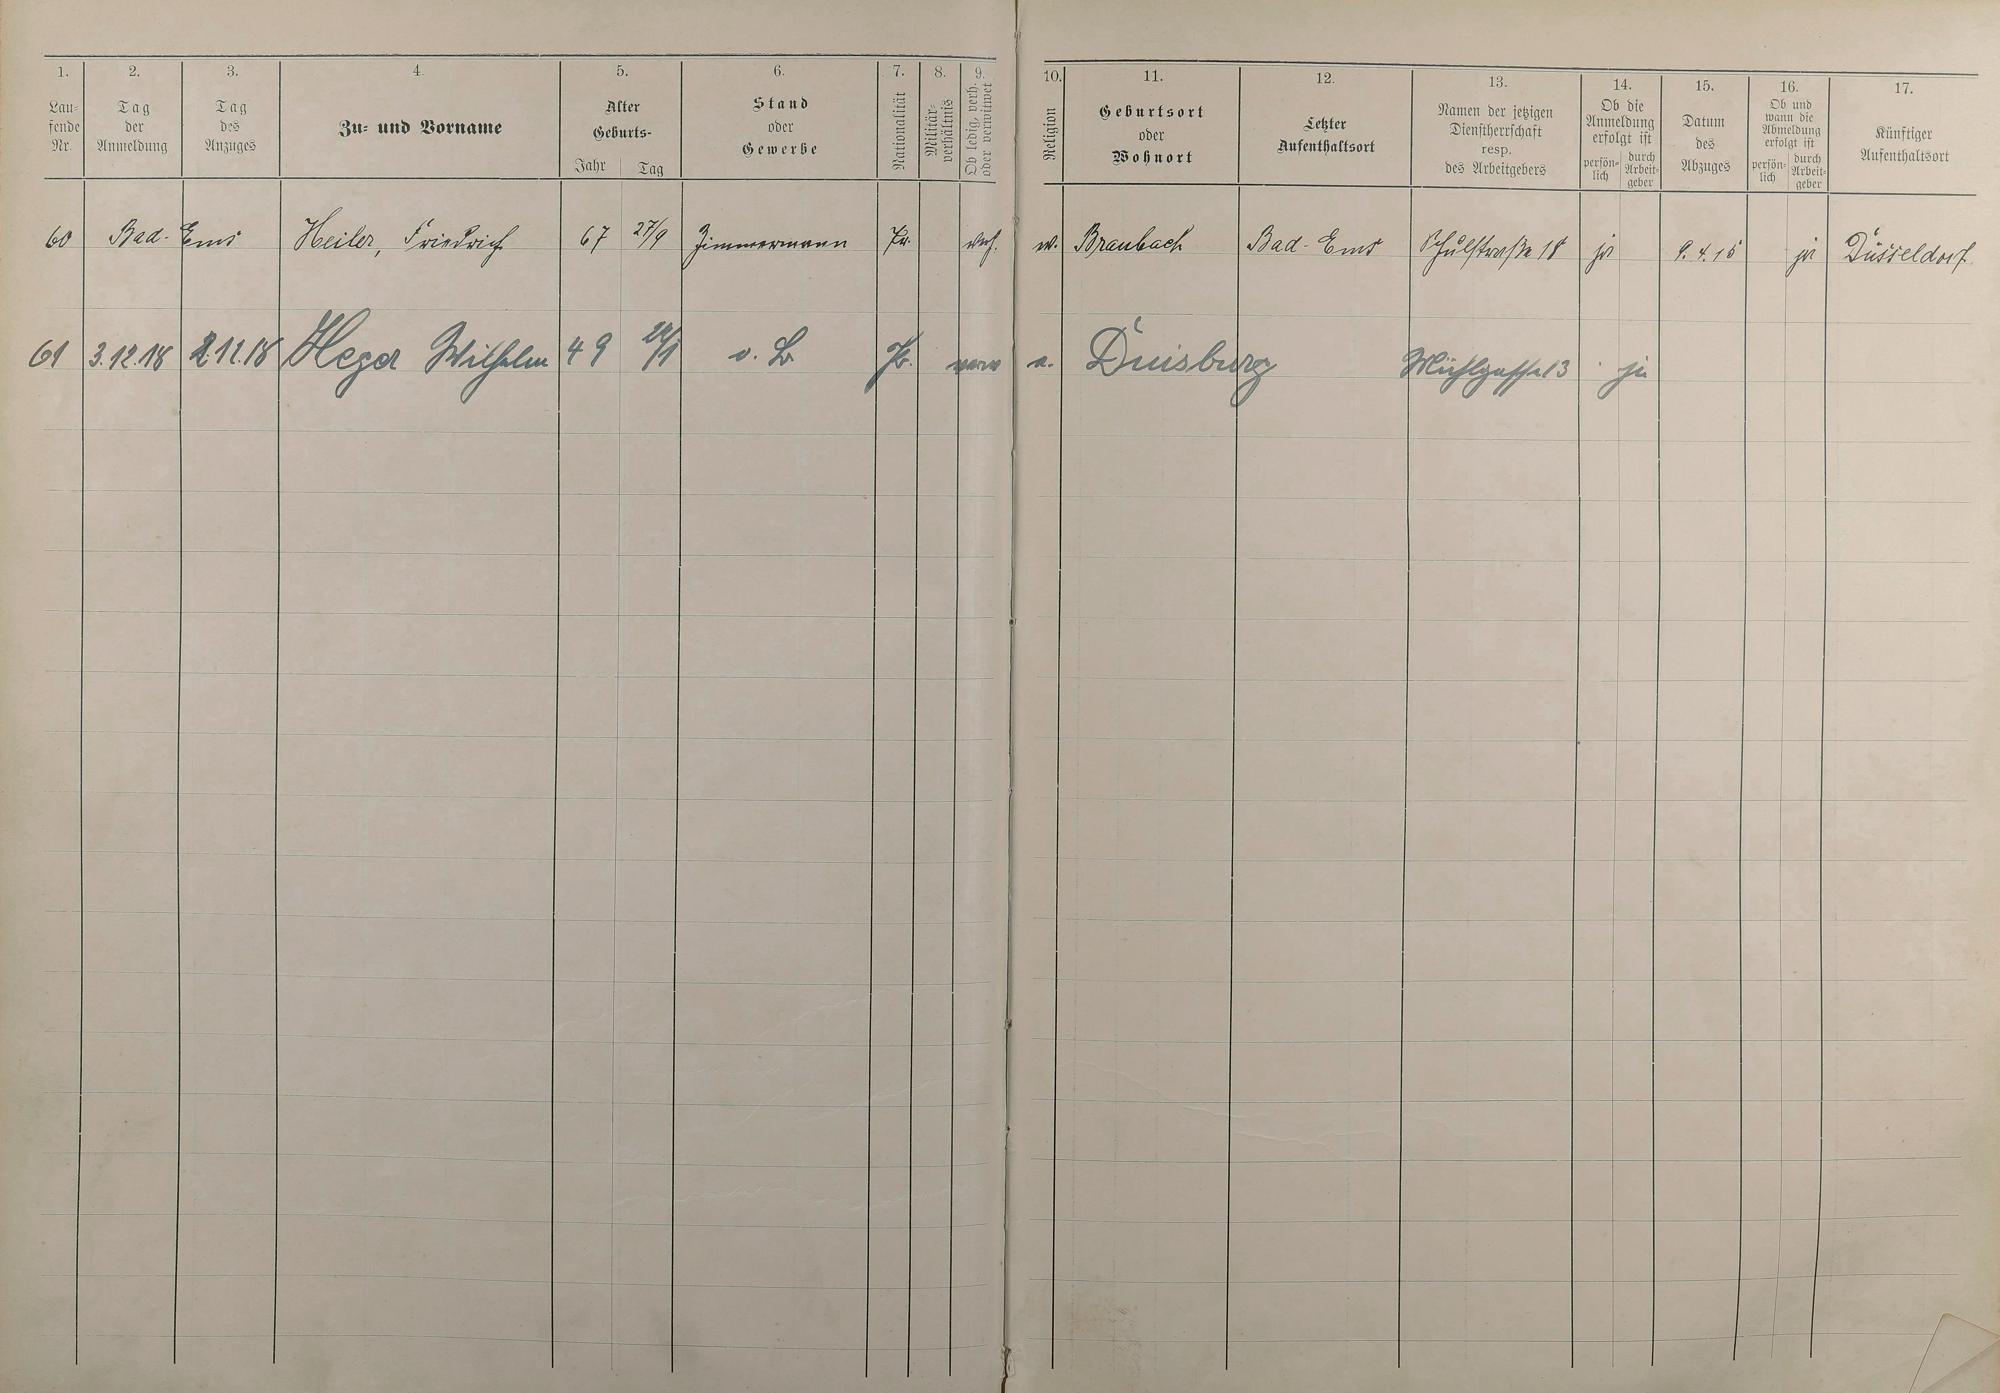 1. 2. 3. 4. 5. 6. 7. 8. 9. 10. 11. 12. 13. 14. 15. 16. 17.
Lau-
fende
Nr.
Tag
der
Anmeldung
Tag
des
Anzuges
Zu- und Vorname
Alter
Geburts-
Jahr Tag
Stand
oder
Gewerbe
Nationalität
Militär-
verhältnis
Ob ledig, verh.
oder verwitwet
Religion
Geburtsort
oder
Wohnort
Letzter
Aufenthaltsort
Namen der jetzigen
Dienstherrschaft
resp.
des Arbeitgebers
Ob die
Anmeldung
erfolgt ist
persön-
lich
durch
Arbeit-
geber
Datum
des
Abzuges
Ob und
wann die
Abmeldung
erfolgt ist
persön-
lich
durch
Arbeit-
geber
Künftiger
Aufenthaltsort
60 Bad-Ems Heiler, Friedrich 67 27/9 Zimmermann Pr. verh. Braubach Bad-Ems Schulstraße 18 ja 9.4.15 ja Düsseldorf
61 3.12.18 2.12.18 Heger Wilhelm 49 Pr. verw Duisburg Mühlgasse 13 ja